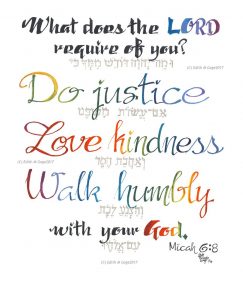 What does the LORD
require of you?
וּמָה יְהוָה דּוֹרֵשׁ מִמְּךָ כִּי
(C) Edith M Gage2017
Do justice
אִם עֲשׂוֹת מִשְׁפָּט
Love kindness
(C) Edith M Gage2017
וְאַהֲבַת חֶסֶד
Walk humbly
וְהַצְנֵעַ לֶכֶת
(C) Edith M Gage2017
with your God.
עִם אֱלֹהֶיךָ
Micah 6:8